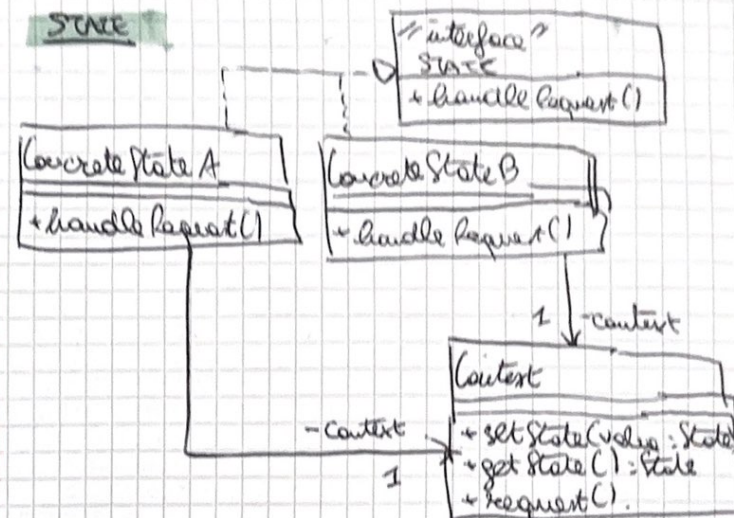 STATE
"interface"
STATE
+ handleRequest()
ConcreteState A
+ handleRequest()
ConcreteState B
+ handleRequest()
1 -context
Context
+ setState(value : State)
+ getState() : State
+ request().
-context
1